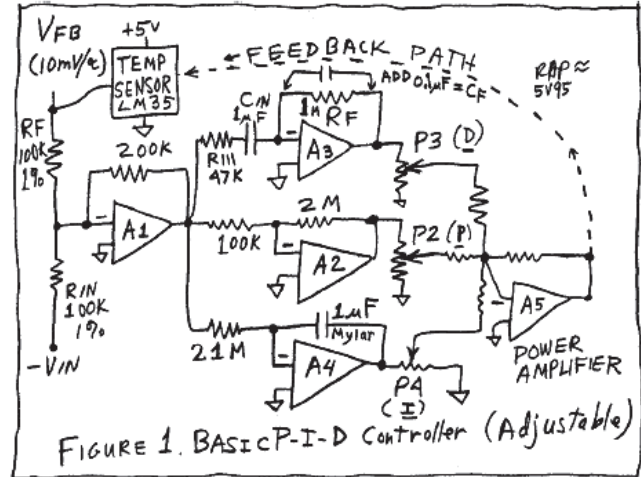 VFB
(10mV/°C)
+5V
TEMP
SENSOR
LM35
FEEDBACK PATH
ADD 0.1μF = CF
RAP ≈
5V95
CIN
1μF
1M
RF
RIII
47K
A3
P3 (D)
RF
100K
1%
200K
A1
100K
2M
A2
P2 (P)
RIN
100K
1%
-VIN
21M
1μF
Mylar
A4
P4
(I)
A5
POWER
AMPLIFIER
FIGURE 1. BASIC P-I-D Controller (Adjustable)